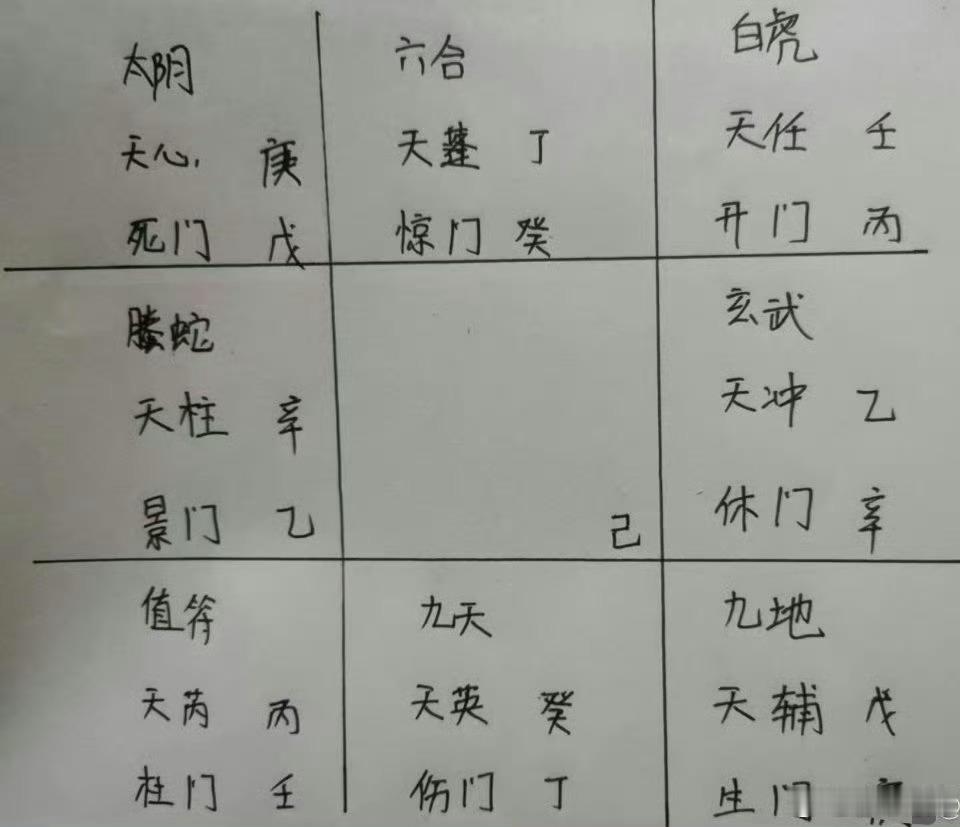 太阴
天心 庚
死门 戊
六合
天蓬 丁
惊门 癸
白虎
天任 壬
开门 丙
螣蛇
天柱 辛
景门 乙
己
玄武
天冲 乙
休门 辛
值符
天芮 丙
杜门 壬
九天
天英 癸
伤门 丁
九地
天辅 戊
生门